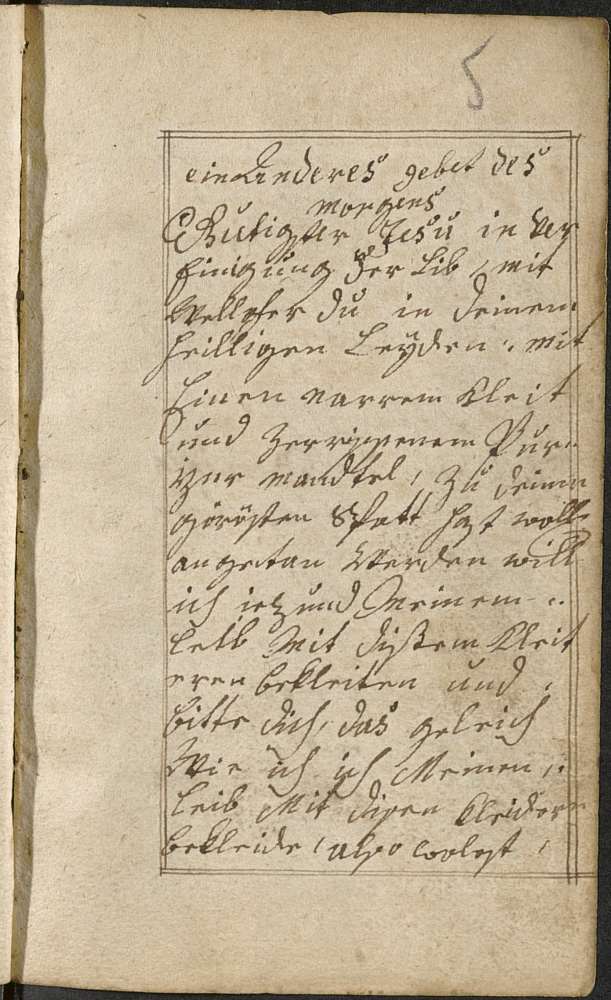 5
ein Anderes gebet des
morgens
Gütigster Jesu in Ver
einigung der Lib / mit
Wellcher du in deinem
heilligen Leyden : mit
Einen narren Kleit
und zerrissenem Pur=
per mandtel / zu deinem
grösten Spott hast woll
angetan Werden will
ich jetzund Meinem
Leib Mit disem Kleit
bekleiten und
bitte dich, das geleich
Wie ich ich Meinen
Leib Mit disen Kleidern
bekleide / also wolest /